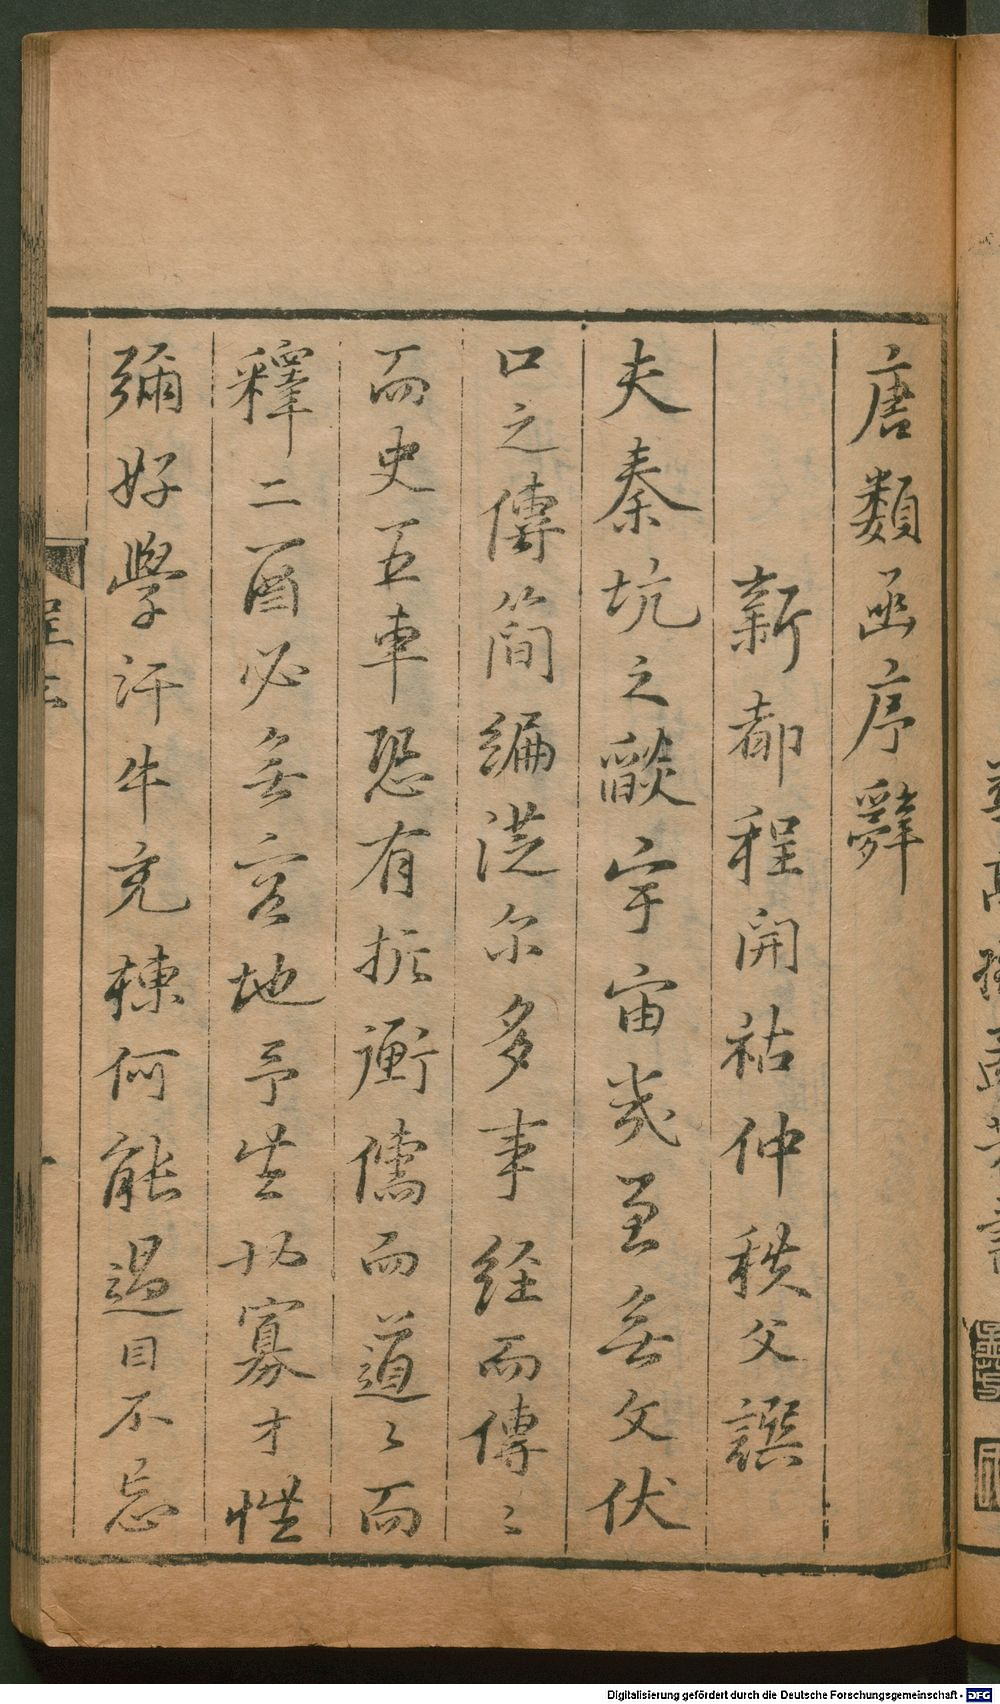 唐類函序辭
新都程開祜仲秩父譔
夫秦坑之燄宇宙幾至無文伏
口之傳簡編洪尔多事經而傳〻
而史五車恐有折衡儒而道〻而
釋二酉必無宫地予生也寡才性
彌好學汗牛充棟何能過目不忘
程
Digitalisierung gefördert durch die Deutsche Forschungsgemeinschaft - DFG